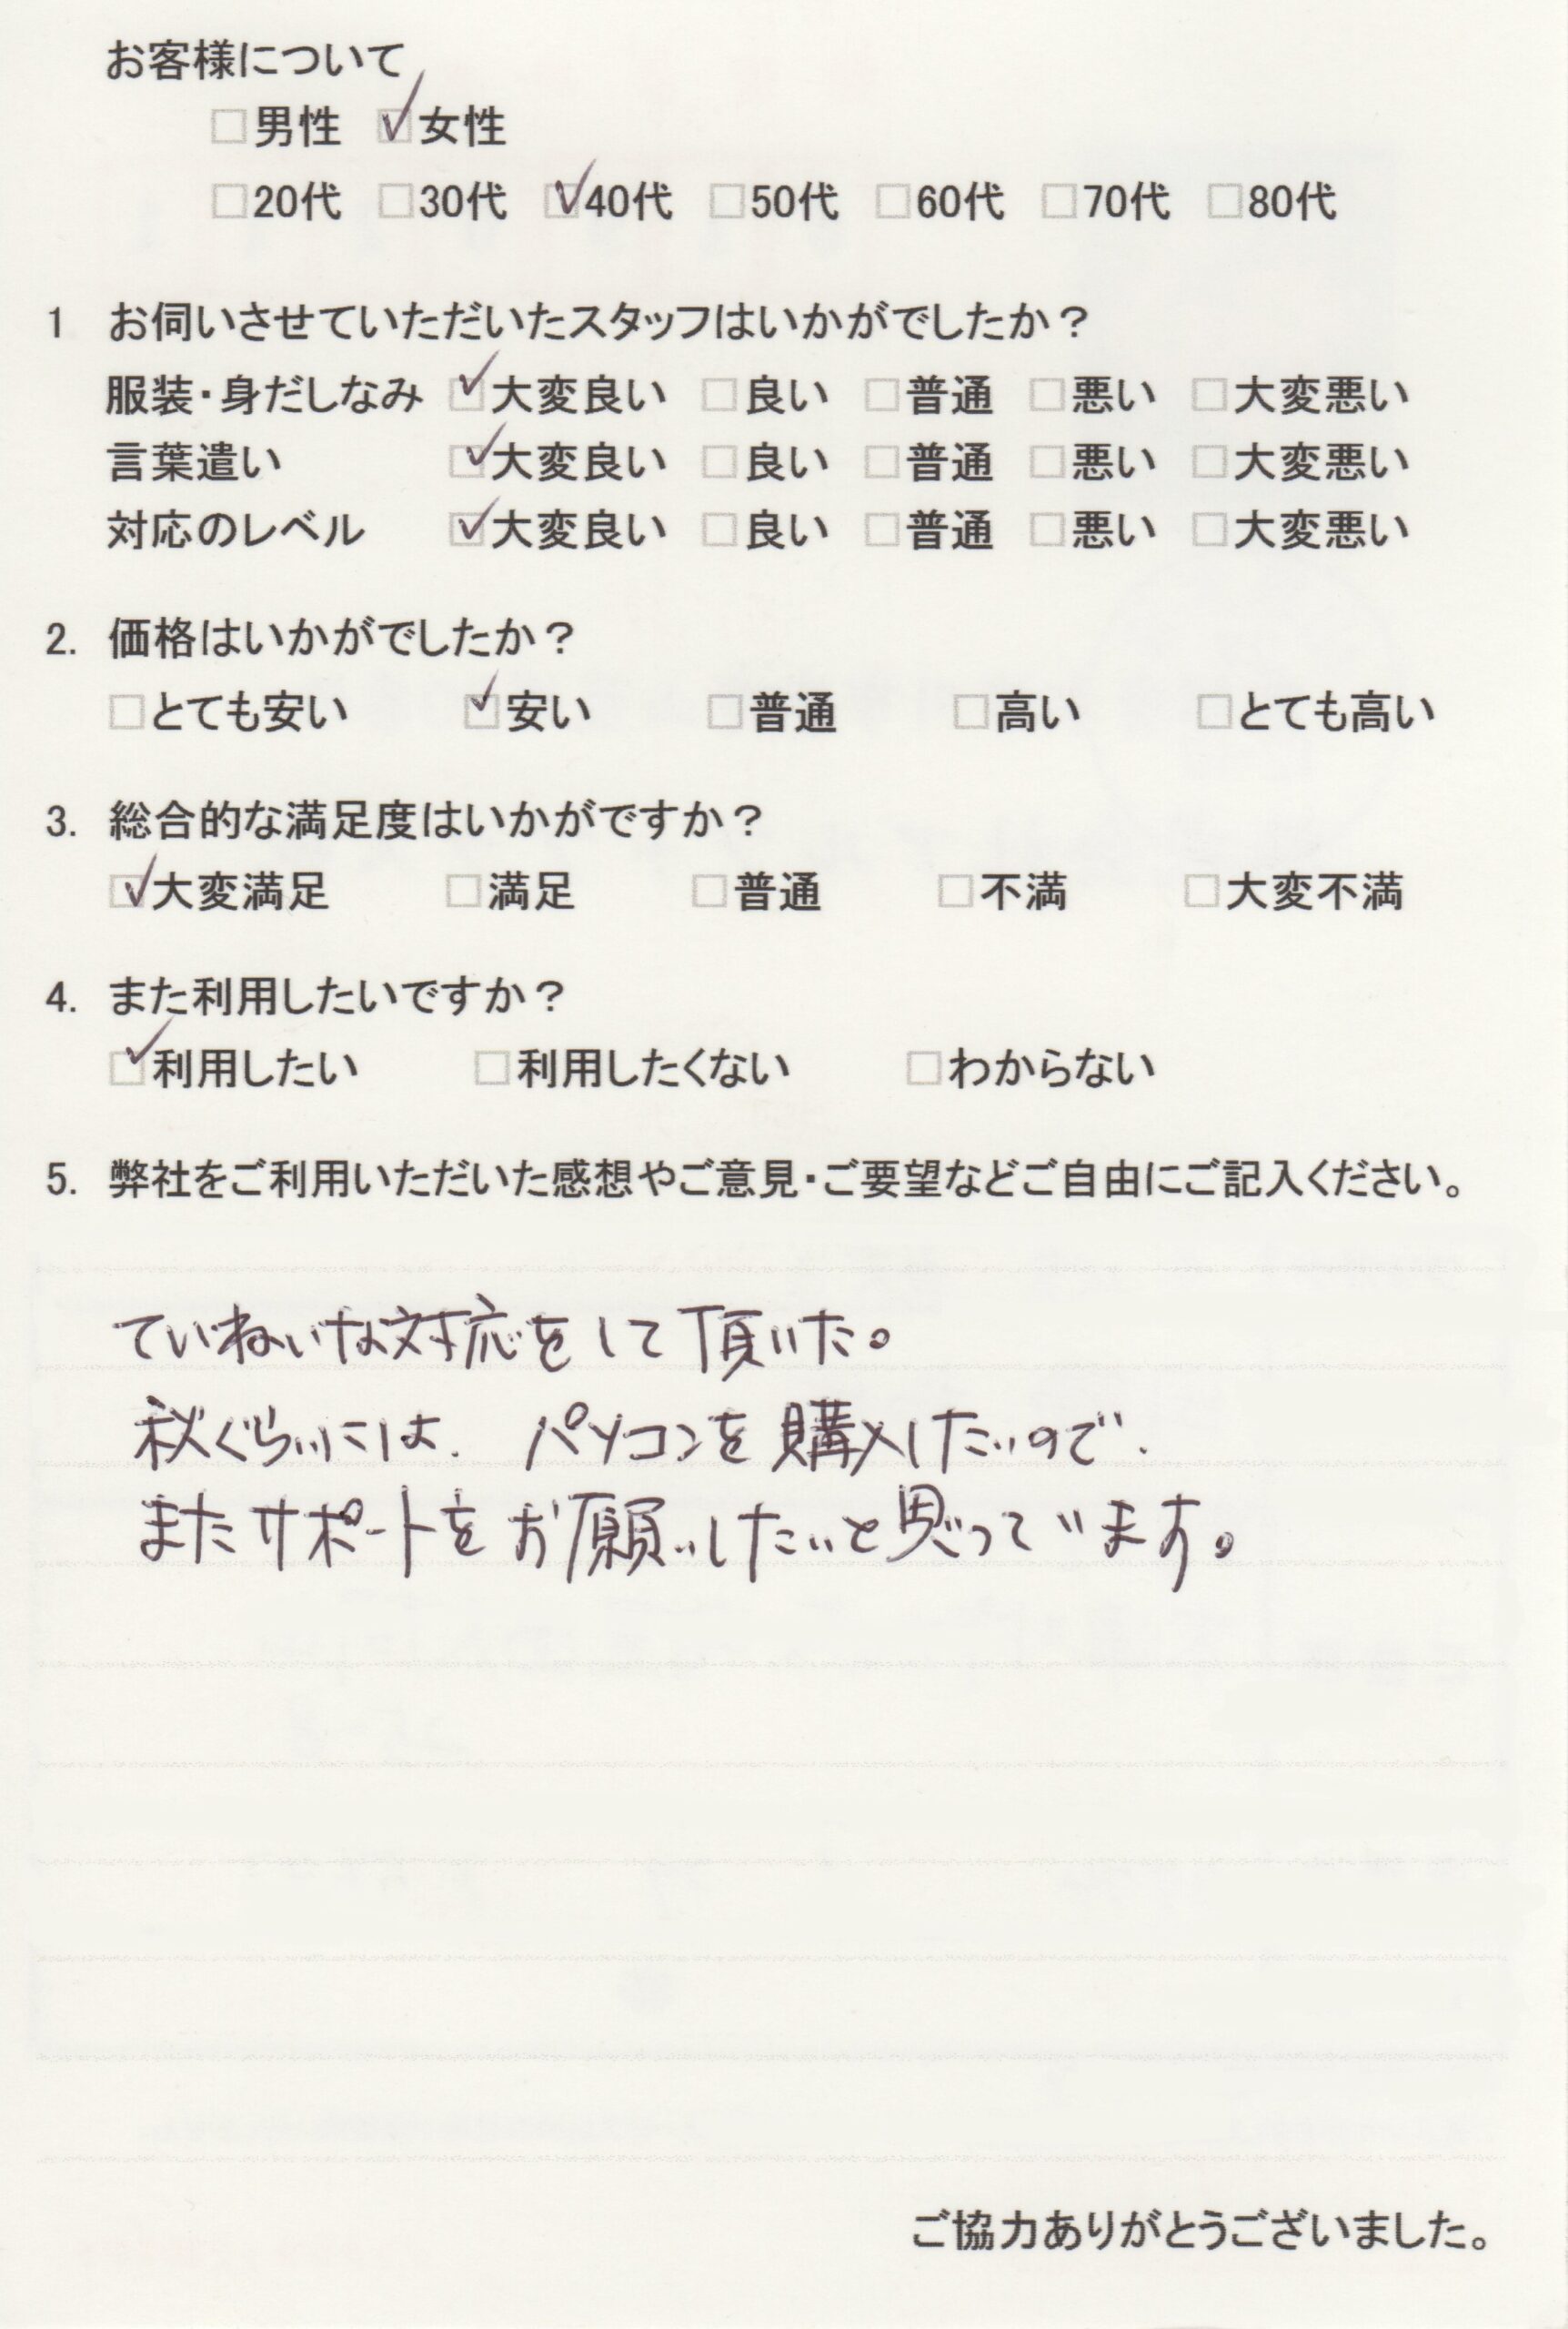 お客様について
□男性 ☑女性
□20代 □30代 ☑40代 □50代 □60代 □70代 □80代
1 お伺いさせていただいたスタッフはいかがでしたか？
服装・身だしなみ ☑大変良い □良い □普通 □悪い □大変悪い
言葉遣い ☑大変良い □良い □普通 □悪い □大変悪い
対応のレベル ☑大変良い □良い □普通 □悪い □大変悪い
2. 価格はいかがでしたか？
□とても安い ☑安い □普通 □高い □とても高い
3. 総合的な満足度はいかがですか？
☑大変満足 □満足 □普通 □不満 □大変不満
4. また利用したいですか？
☑利用したい □利用したくない □わからない
5. 弊社をご利用いただいた感想やご意見・ご要望などご自由にご記入ください。
ていねいな対応をして頂いた。
秋ぐらいには、パソコンを購入したいので、
またサポートをお願いしたいと思っています。
ご協力ありがとうございました。